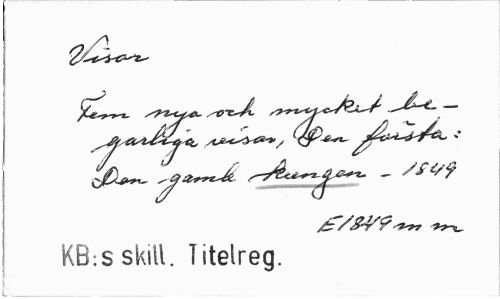 Visor
Fem nya och mycket be-
garliga visor, Den första:
Den gamle kungen - 1849
E1849mm
KB:s skill. Titelreg.